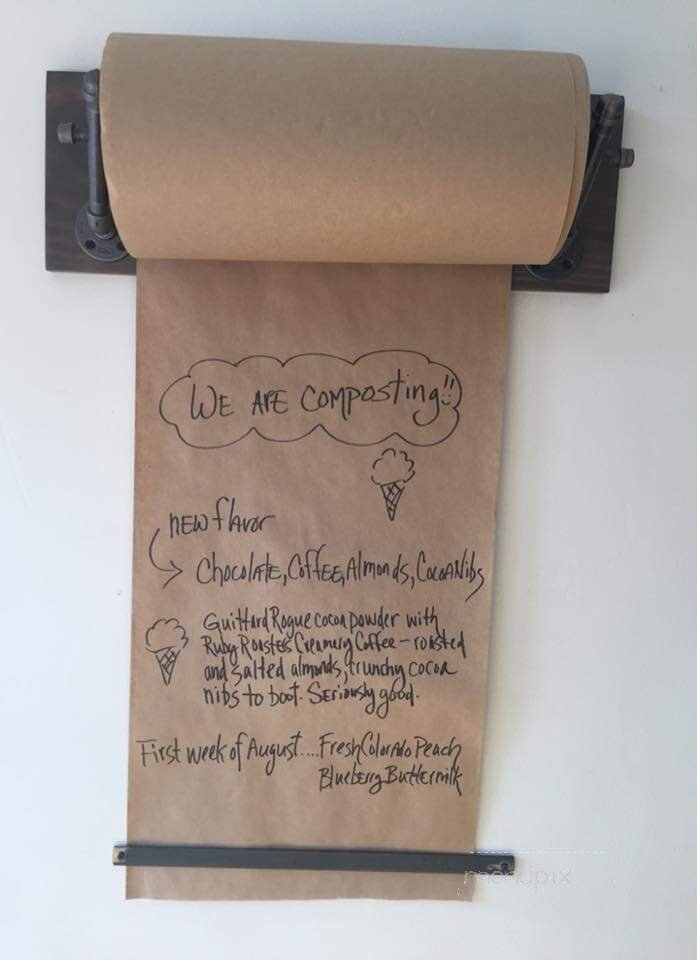 WE ARE COMPOSTING!!
NEW flavor
Chocolate, Coffee, Almonds, Cocoa Nibs
Guittard Rogue cocoa powder with
Ruby Roasters Creamery Coffee – roasted
and salted almonds, crunchy cocoa
nibs to boot. Seriously good.
First week of August.... Fresh Colorado Peach
Blueberry Buttermilk
menupix